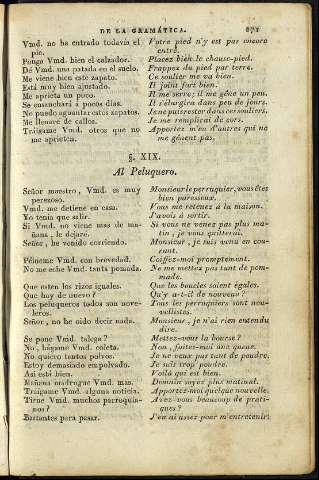 DE LA GRAMÁTICA. 271
Vmd. no ha entrado todavía el Votre pied n'y est pas encore
pie. entré.
Ponga Vmd. bien el calzador. Placez bien le chause-pied.
Dé Vmd. una patada en el suelo. Frappez du pied par terre.
Me viene bien este zapato. Ce soulier me va bien.
Está muy bien ajustado. Il joint fort bien.
Me aprieta un poco. Il me serre; il me gêne un peu.
Se ensanchará á pocos dias. Il s'élargira dans peu de jours.
No puedo aguantar estos zapatos. Je ne puis rester dans ces souliers.
Me llenaré de callos. Je me remplirai de cors.
Tráigame Vmd. otros que no Apportez m'en d'autres qui ne
me aprieten. me gênent pas.
§. XIX.
Al Peluquero.
Señor maestro, Vmd. es muy Monsieur le perruquier, vous êtes
perezoso. bien paresseux.
Vmd. me detiene en casa. Vous me retenez à la maison.
Yo tenia que salir. J'avois à sortir.
Si Vmd. no viene mas de ma- Si vous ne venez pas plus ma-
ñana, le dejaré. tin, je vous quitterai.
Señor, he venido corriendo. Monsieur, je suis venu en cou-
rant.
Péineme Vmd. con brevedad. Coiffez-moi promptement.
No me eche Vmd. tanta pomada. Ne me mettez pas tant de pom-
made.
Que esten los rizos iguales. Que les boucles soient égales.
Que hay de nuevo? Qu'y a-t-il de nouveau?
Los peluqueros todos son nove- Tous les perruquiers sont nou-
leros. vellistes.
Señor, no he oido decir nada. Monsieur, je n'ai rien entendu
dire.
Se pone Vmd. talega? Mettez-vous la bourse?
No, hágame Vmd. coleta. Non, faites-moi une queue.
No quiero tantos polvos. Je ne veux pas tant de poudre.
Estoy demasiado empolvado. Je suis trop poudré.
Así está bien. Voilà qui est bien.
Mañana madrugue Vmd. mas. Demain soyez plus matinal.
Tráigame Vmd. alguna noticia. Apportez-moi quelque nouvelle.
Tiene Vmd. muchos parroquia- Avez-vous beaucoup de prati-
nos? ques?
Bastantes para pasar. J'en ai assez pour m'entretenir.